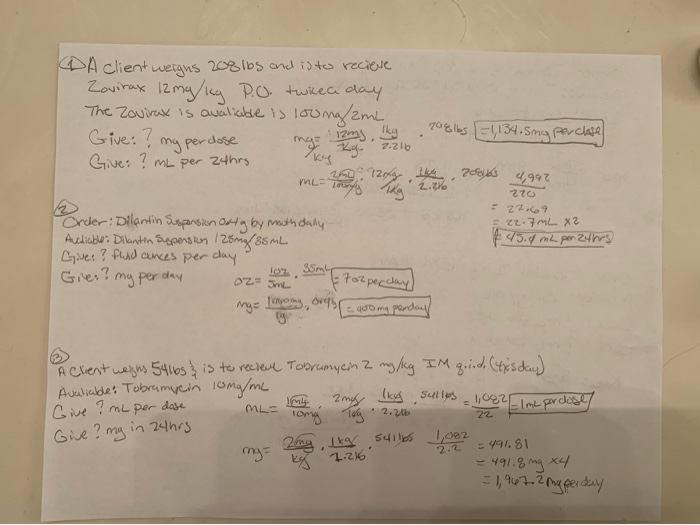 ① A client weighs 208 lbs and is to recieve
Zovirax 12mg/kg P.O. twice a day
The Zovirax is avaliable is 100mg/2mL
Give: ? mg per dose
mg/kg = 12mg/kg · 1kg/2.2lb · 208 lbs = 1,134.5mg per dose
Give: ? mL per 24hrs
mL = 2mL/100mg · 12mg/kg · 1kg/2.2lb · 208 lbs 4,992/220
= 22.69
= 22.7mL x2
= 45.4 mL per 24hrs
② Order: Dilantin Suspension 0.4g by mouth daily
Avaliable: Dilantin Suspension 125mg/35mL
Give: ? fluid ounces per day
oz = 1oz/5mL · 35mL = 7oz per day
Give: ? mg per day
mg = 1000mg/1g · = 400mg per day
③
A client weighs 541lbs & is to recieve Tobramycin 2 mg/kg IM q.i.d. (4xs day)
Avaliable: Tobramycin 10mg/mL
Give ? mL per dose
mL = 1mL/10mg · 2mg/kg · 1kg/2.2lb · 541 lbs = 1,082/22 = 1mL per dose
Give ? mg in 24hrs
mg = 2mg/kg · 1kg/2.2lb · 541 lbs 1,082/2.2 = 491.81
= 491.8mg x4
= 1,967.2mg per day